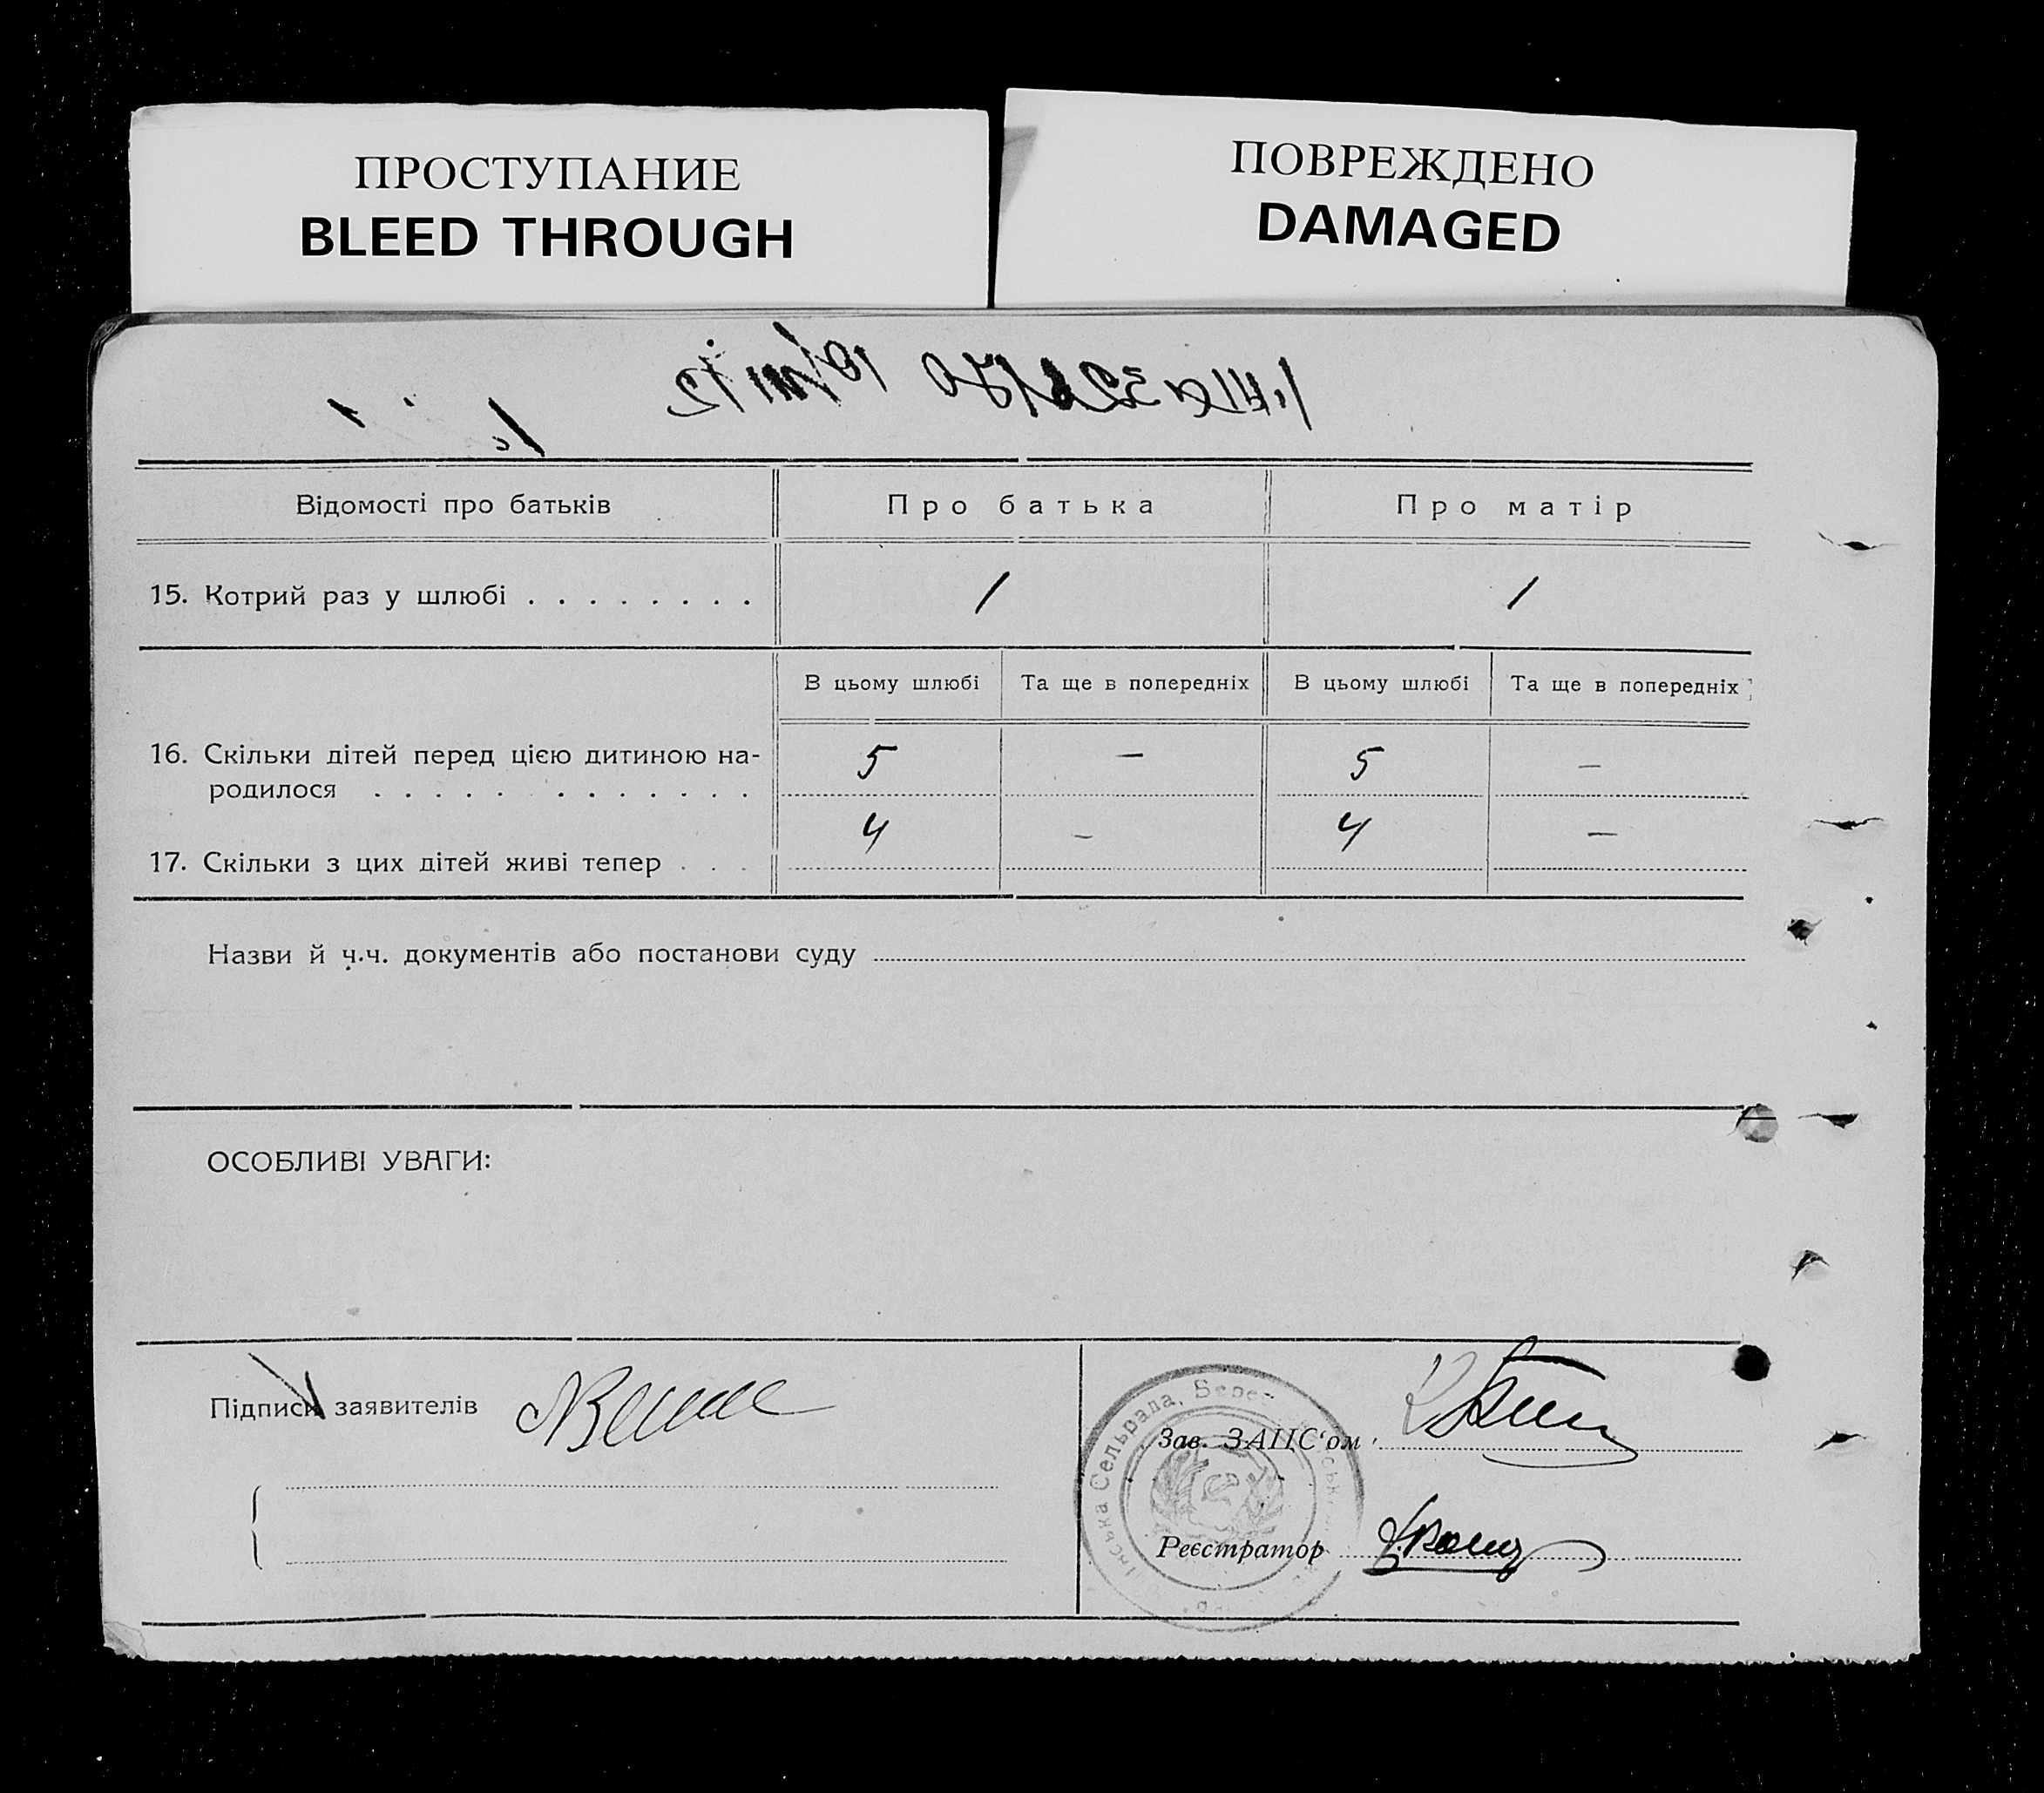 ПРОСТУПАНИЕ
BLEED THROUGH
ПОВРЕЖДЕНО
DAMAGED
Відомості про батьків Про батька Про матір
15. Котрий раз у шлюбі . . . . . . . . 1 1
В цьому шлюбі Та ще в попередніх В цьому шлюбі Та ще в попередніх
16. Скільки дітей перед цією дитиною на- 5 — 5 —
родилося . . . . . . . . . . . . .
4 — 4 —
17. Скільки з цих дітей живі тепер . . .
Назви й ч.ч. документів або постанови суду
ОСОБЛИВІ УВАГИ:
Підписи заявителів
Зав. ЗАПС'ом
Реєстратор
Сельрада, Берез